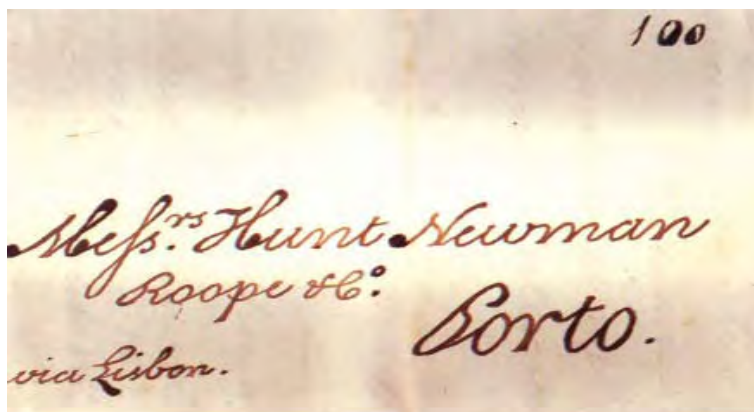 100
Messrs. Hunt Newman
Roope & Co.
Porto.
via Lisbon.